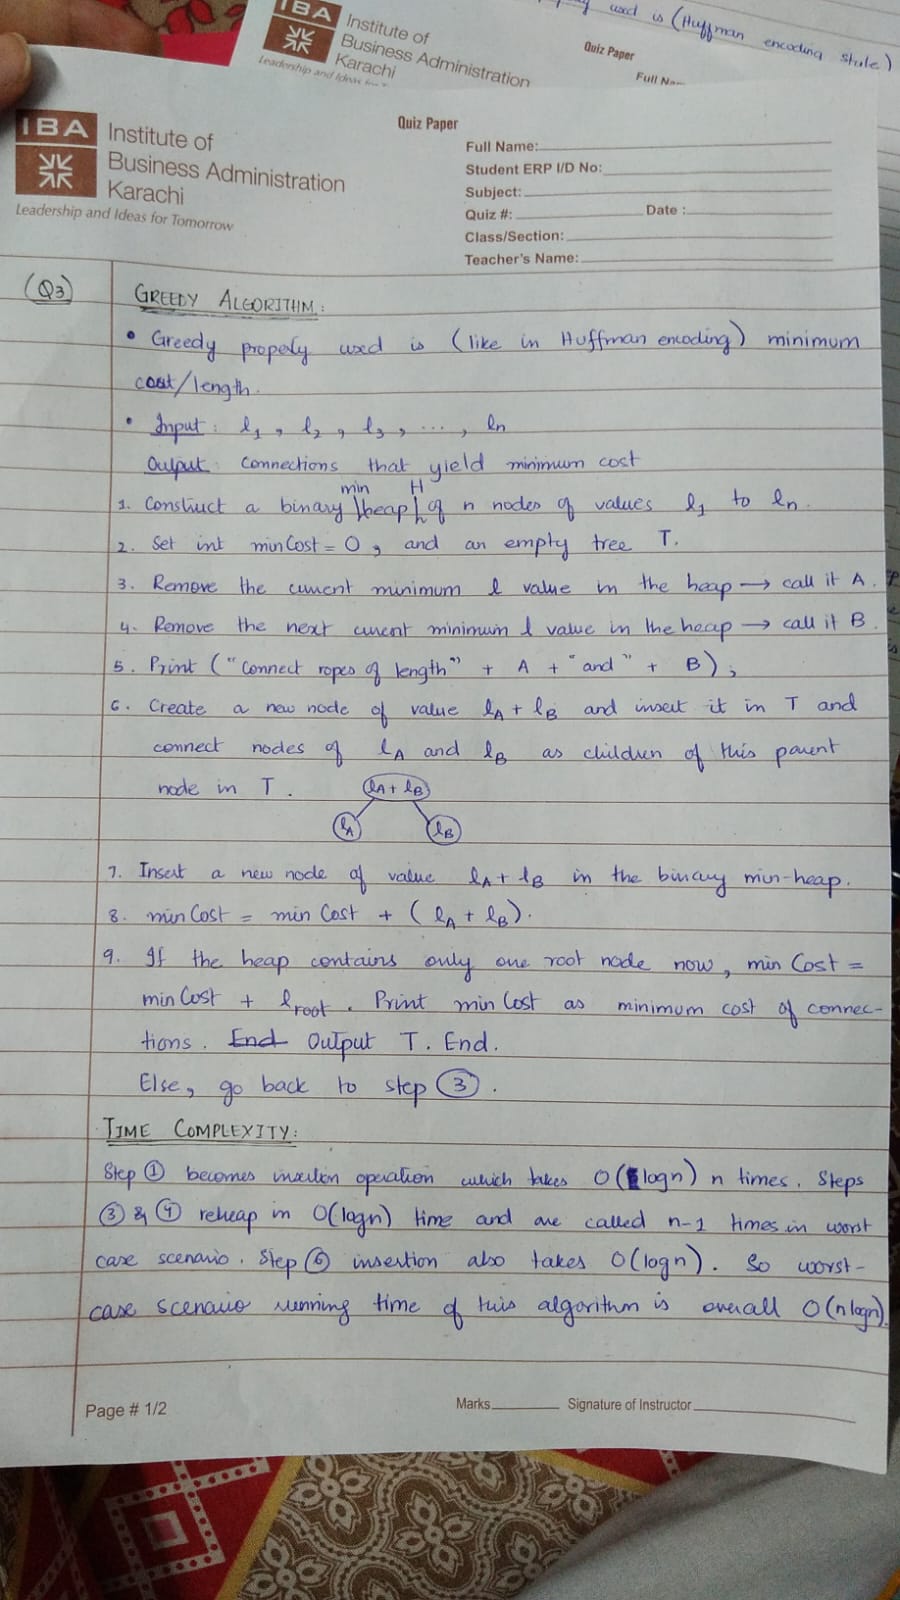 used is (Huffman encoding style)
IBA
Institute of
Business Administration
Karachi
Leadership and Ideas for
Quiz Paper
Full Na
IBA
Institute of
Business Administration
Karachi
Leadership and Ideas for Tomorrow
Quiz Paper
Full Name:
Student ERP I/D No:
Subject:
Quiz #: Date :
Class/Section:
Teacher's Name:
(Q3) GREEDY ALGORITHM:
• Greedy property used is (like in Huffman encoding) minimum
cost/length.
• Input: l1, l2, l3, ..., ln
Output: Connections that yield minimum cost
min H
1. Construct a binary heap of n nodes of values l1 to ln.
2. Set int minCost = 0, and an empty tree T.
3. Remove the current minimum l value in the heap → call it A.
4. Remove the next current minimum l value in the heap → call it B.
5. Print ("Connect ropes of length" + A + "and" + B);
6. Create a new node of value lA + lB and insert it in T and
connect nodes of lA and lB as children of this parent
node in T.
lA + lB
lA lB
7. Insert a new node of value lA + lB in the binary min-heap.
8. minCost = minCost + (lA + lB).
9. If the heap contains only one root node now, minCost =
minCost + lroot. Print minCost as minimum cost of connec-
tions. End Output T. End.
Else, go back to step 3.
TIME COMPLEXITY:
Step 1 becomes insertion operation which takes O(logn) n times. Steps
3 & 4 reheap in O(logn) time and are called n-1 times in worst
case scenario. Step 6 insertion also takes O(logn). So worst-
case scenario running time of this algorithm is overall O(nlogn).
Page # 1/2
Marks Signature of Instructor